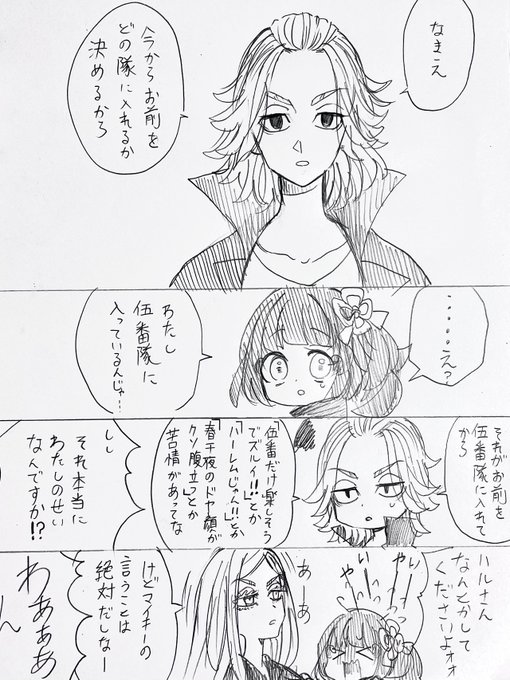 なきえ
今からお前を
どの隊に入れるか
決めるから
・・・・・え?
わたし
伍番隊に
入っているんじゃ…
それがお前を
伍番隊に入れて
から
「伍番だけ楽しそう
でズルイ!!」とか
「ハーレムじゃん!!」とか
「春千夜のドヤ顔が
クソ腹立つ」とか
苦情があってな
しし
それ本当に
わたしのせい
なんですか!?
ハルさん
なんとかして
くださいよォォ
いやーー
いやーー
あーあー
けどマイキーの
言うことは
絶対だしなー
わあああん